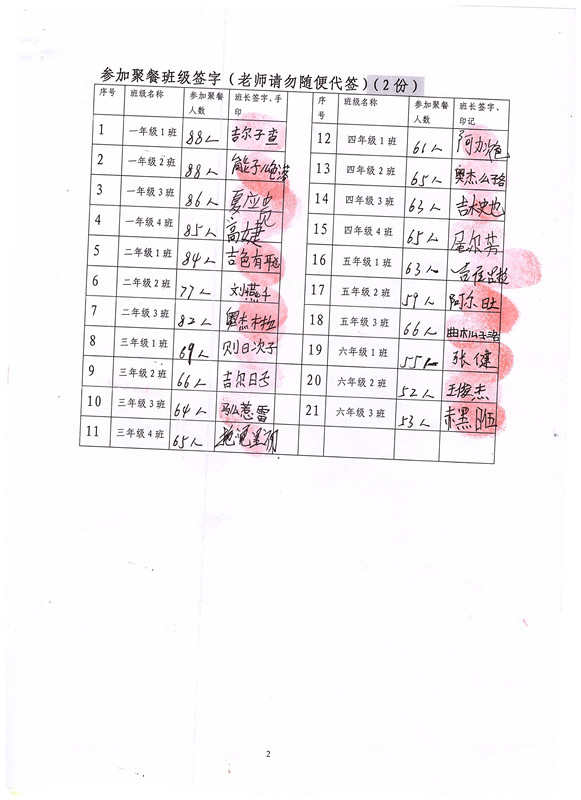 参加聚餐班级签字（老师请勿随便代签）（2 份）
序号 班级名称 参加聚餐人数 班长签字、手印
1 一年级 1 班 88人 吉尔子查
2 一年级 2 班 88人
3 一年级 3 班 86人 夏应
4 一年级 4 班 85人 高婕
5 二年级 1 班 84人 吉色有
6 二年级 2 班 77人 刘燕
7 二年级 3 班 82人 奥杰木
8 三年级 1 班 69人 则日次子
9 三年级 2 班 66人 吉尔日
10 三年级 3 班 64人 惹雷
11 三年级 4 班 65人
序号 班级名称 参加聚餐人数 班长签字、印记
12 四年级 1 班 61人 阿加
13 四年级 2 班 65人 奥杰么
14 四年级 3 班 63人 吉木史也
15 四年级 4 班 65人
16 五年级 1 班 63人
17 五年级 2 班 59人 阿尔日
18 五年级 3 班 66人 曲木么
19 六年级 1 班 55人 张健
20 六年级 2 班 52人 王俊杰
21 六年级 3 班 53人 赤黑
2